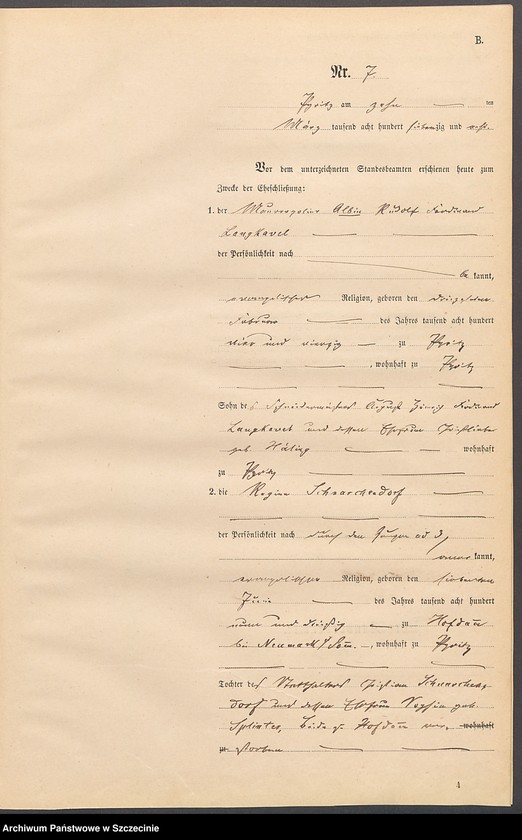 B.
Nr. 7.
Pyritz am zehn ten
März tausend acht hundert siebenzig und acht.
Vor dem unterzeichneten Standesbeamten erschienen heute zum
Zwecke der Eheschließung:
1. der Albin Rudolf Ferdinand
Langkavel
der Persönlichkeit nach
be kannt,
evangelischer Religion, geboren den
Februar des Jahres tausend acht hundert
vier und vierzig zu Pyritz
, wohnhaft zu Pyritz
Sohn des Schneidermeisters August Ferdinand
Langkavel und dessen Ehefrau
geb. wohnhaft
zu Pyritz
2. die Regine Schnarchendorf
der Persönlichkeit nach durch den Zeugen ad 3,
kannt,
evangelischer Religion, geboren den siebenten
des Jahres tausend acht hundert
neun und dreißig zu
bei Neumark i/Pom., wohnhaft zu Pyritz
Tochter des Christian Schnarchen-
dorf und dessen Ehefrau Sophie geb.
beide zu ver- wohnhaft
zu storben
4
Archiwum Państwowe w Szczecinie